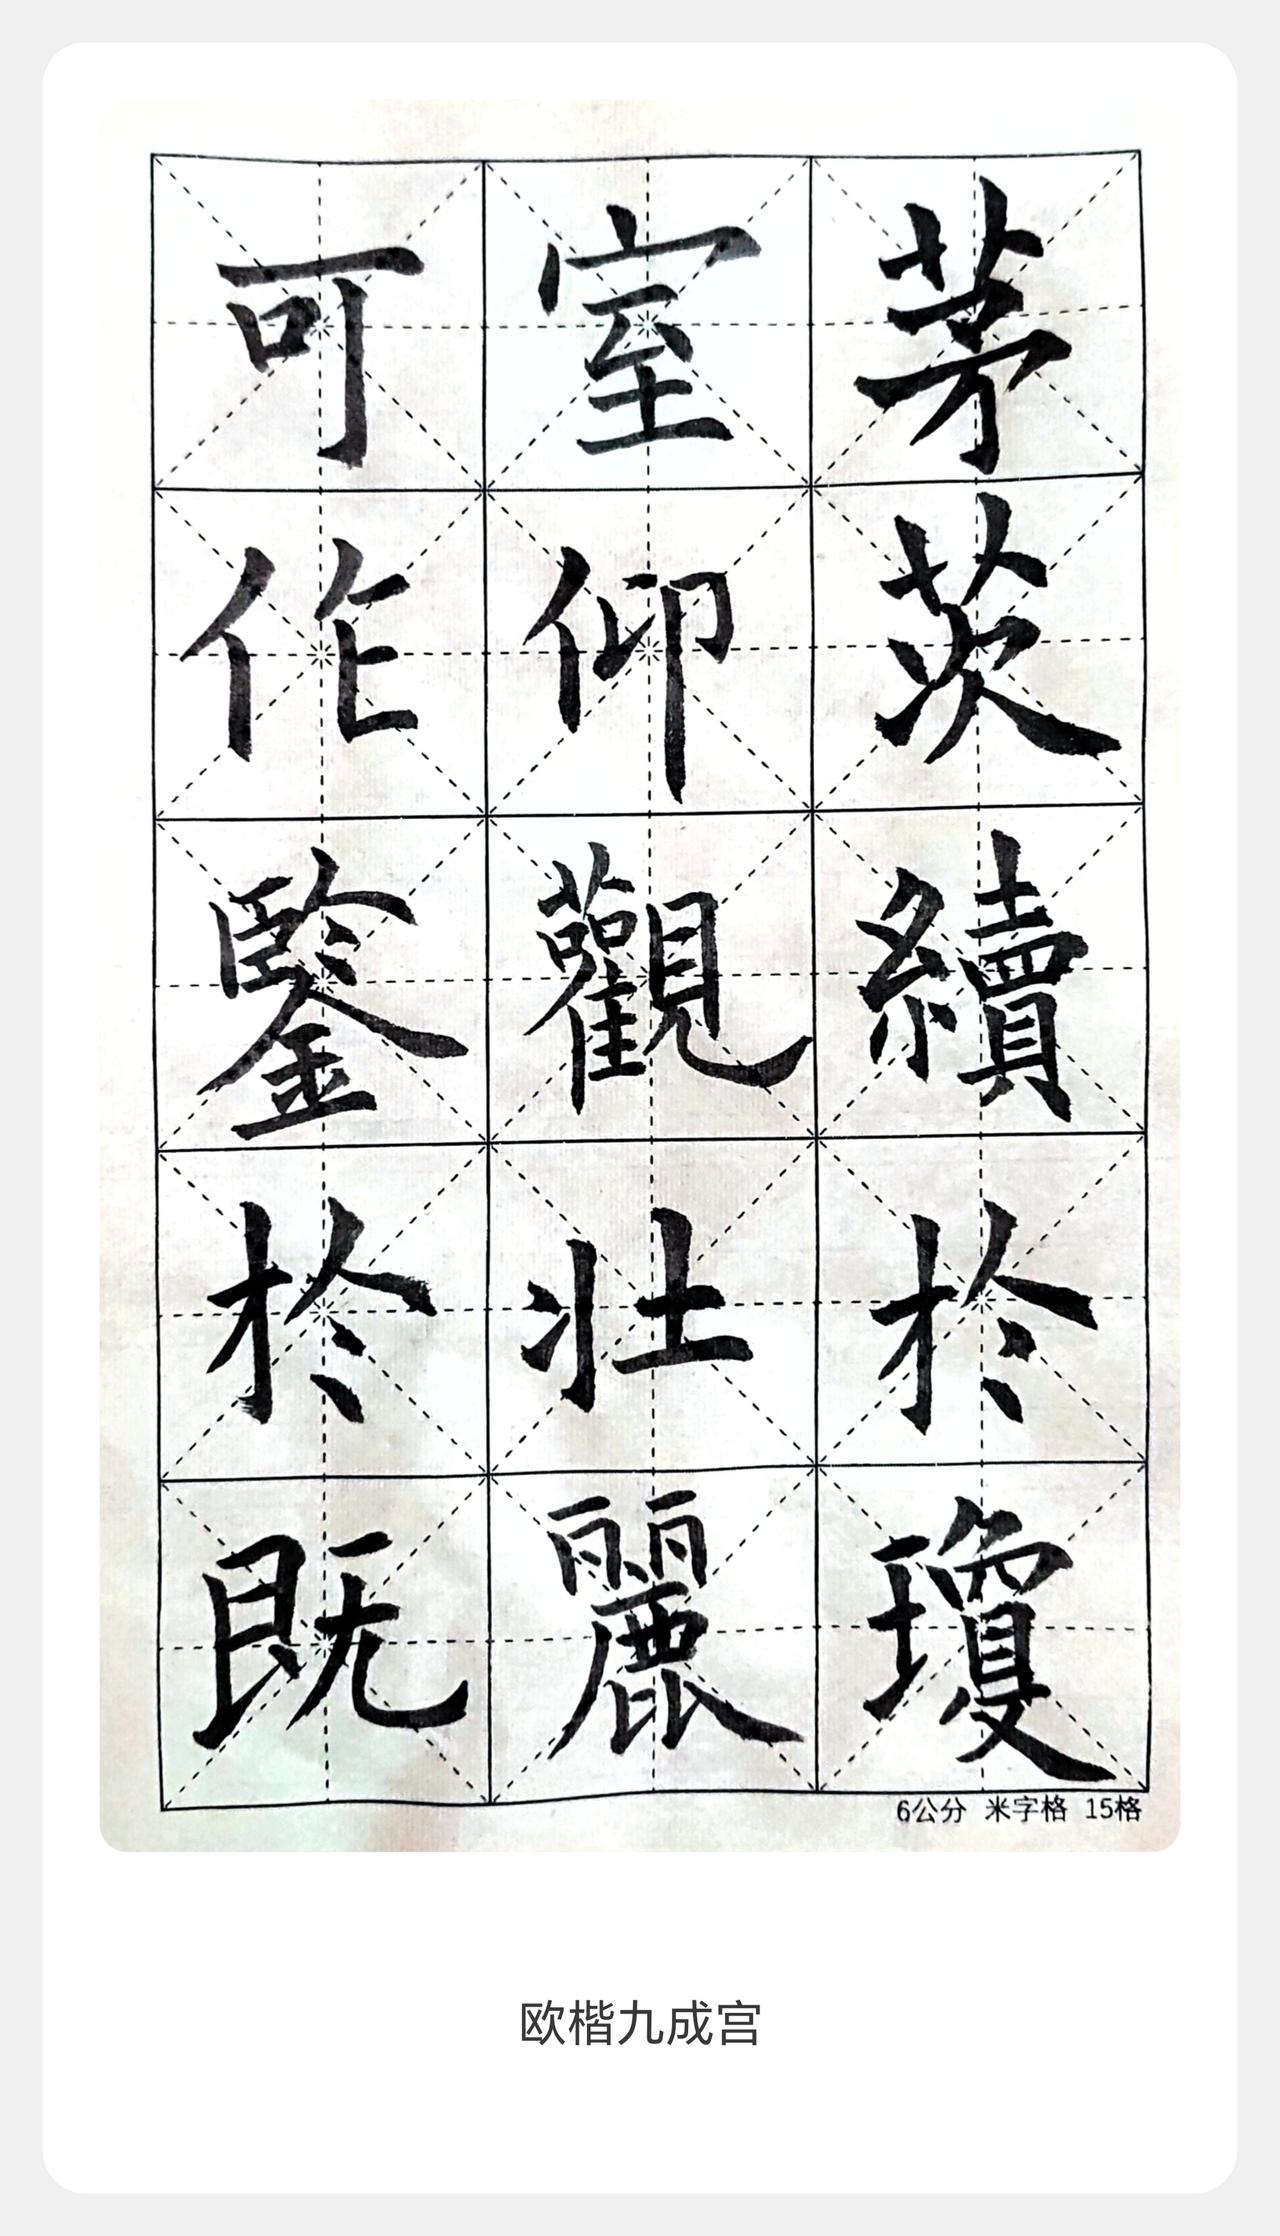 茅茨續於瓊
室仰觀壯麗
可作鑒於既
6公分 米字格 15格
欧楷九成宫